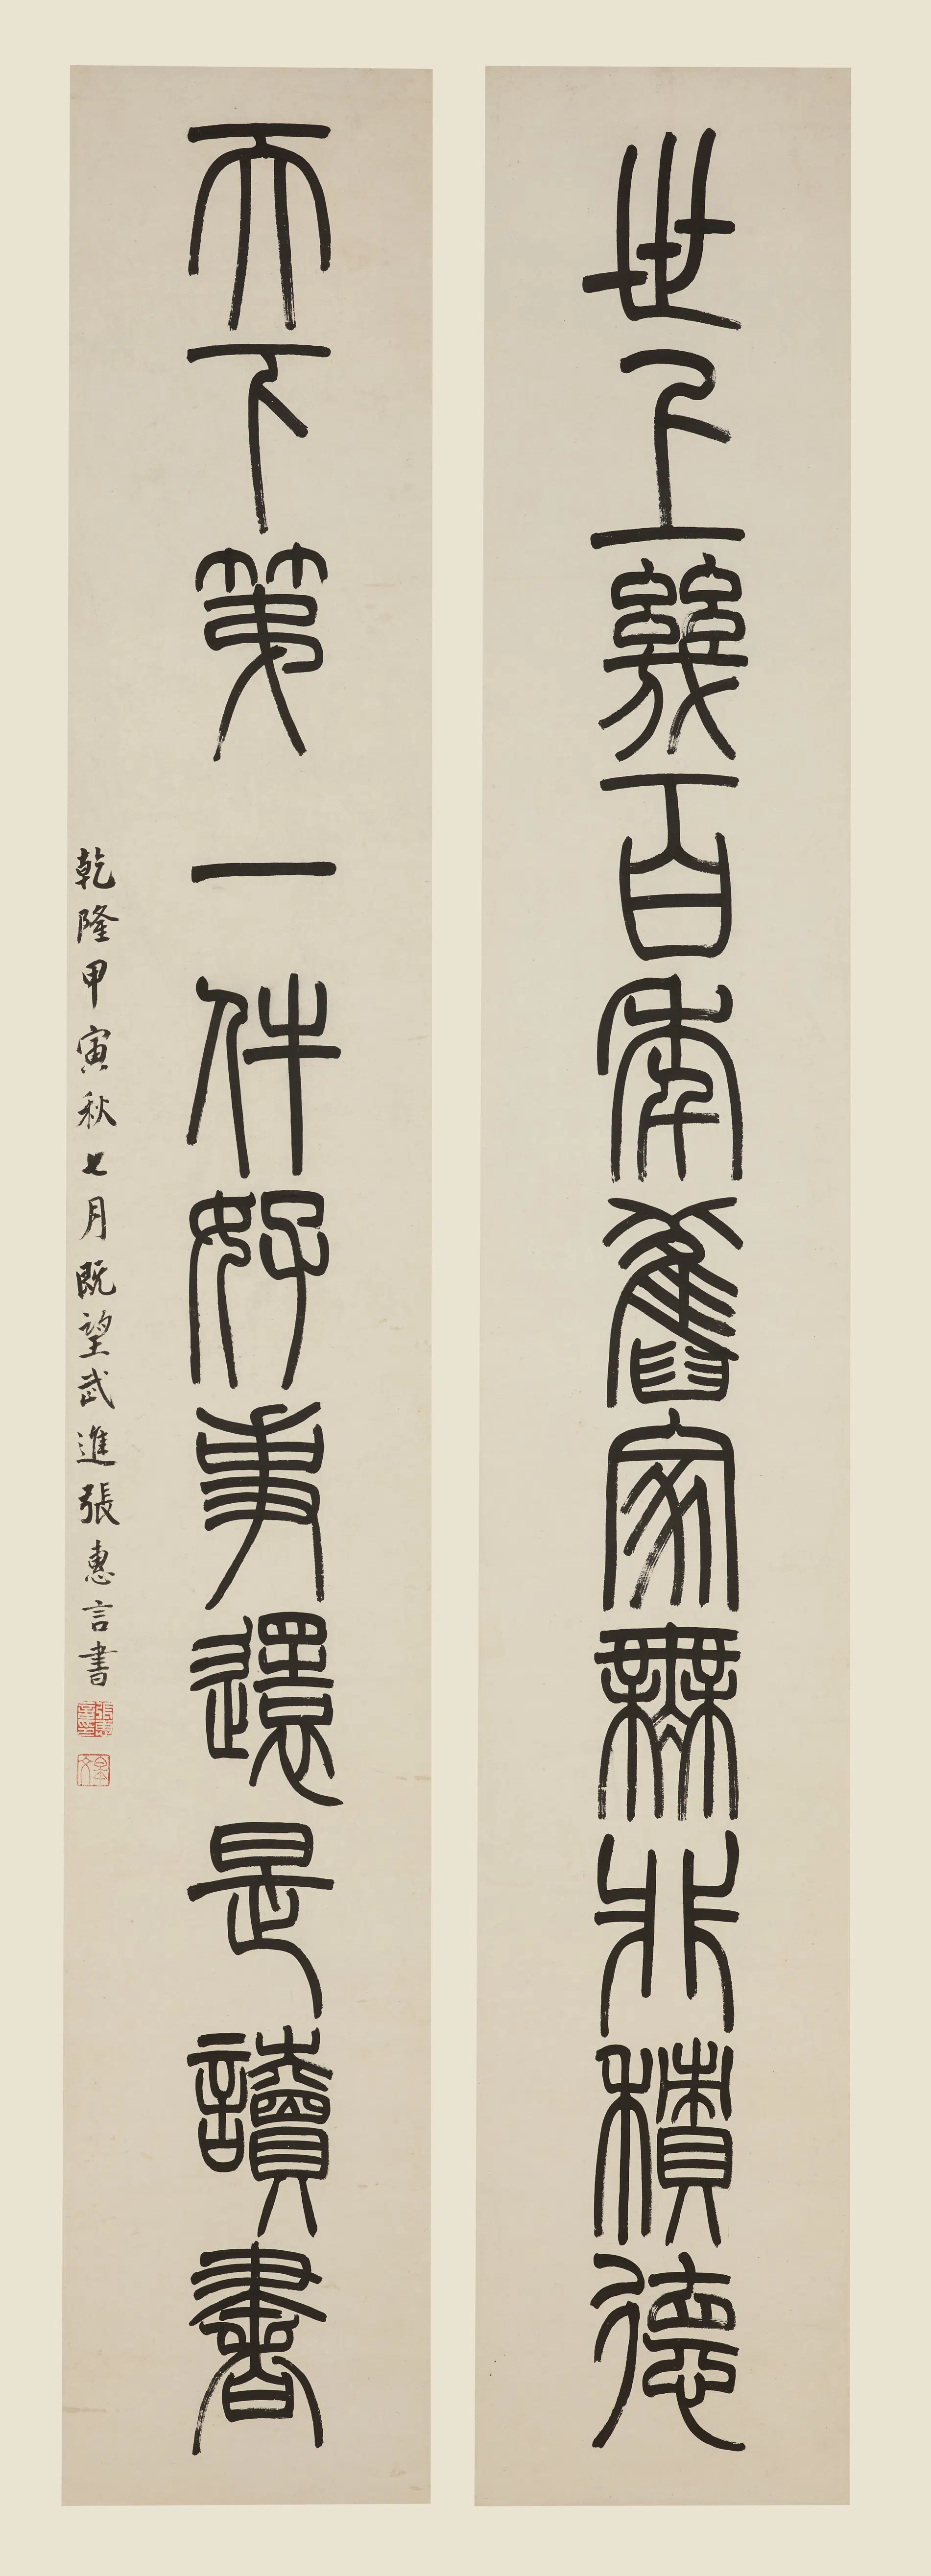 世上幾百年舊家無非積德
天下第一件好事還是讀書
乾隆甲寅秋七月既望武進張惠言書